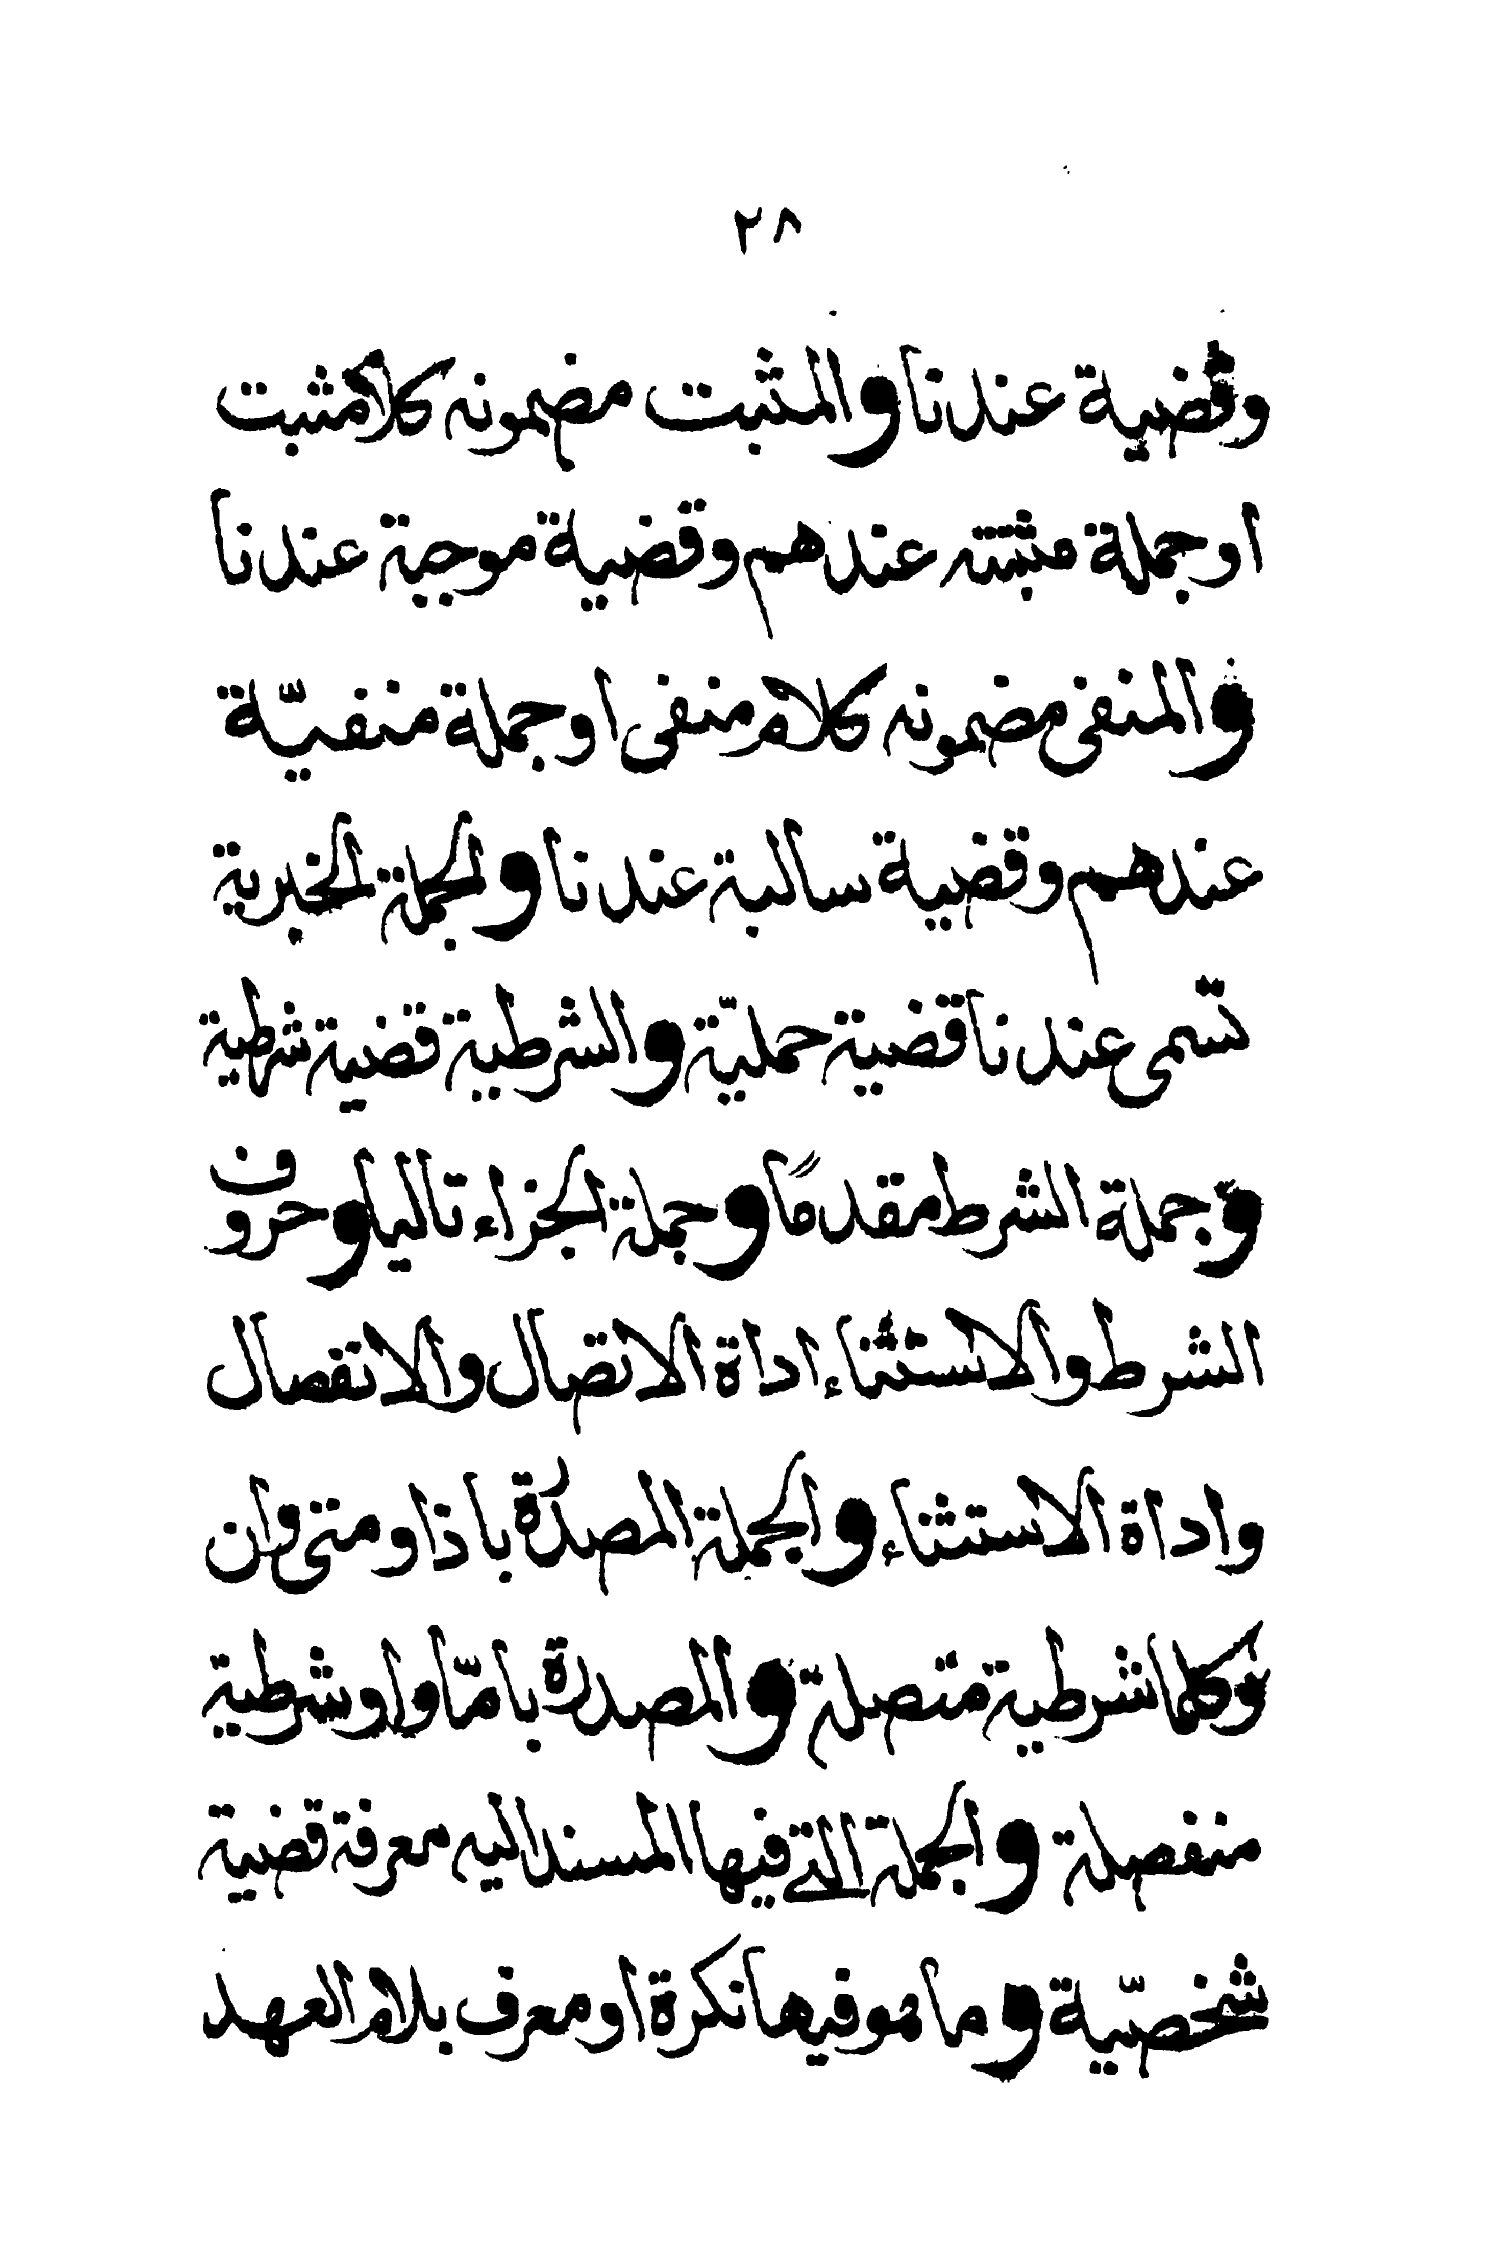 ٢٨
وقضية عندنا والمثبت مضمونه كلام مثبت
او جملة مثبتة عندهم وقضية موجبة عندنا
والمنفى مضمونه كلام منفى او جملة منفيّة
عندهم وقضية سالبة عندنا والجملة الخبرية
تسمى عندنا قضية حمليّة والشرطية قضية شرطية
وجملة الشرط مقدمًا وجملة الجزاء تاليا وحروف
الشرط والاستثناء اداة الاتصال والانفصال
واداة الاستثناء والجملة المصدرة باذا ومتى وان
ولو كلما شرطية متصلة والمصدرة بامّا واو شرطية
منفصلة والجملة التى فيها المسند اليه معرفة قضية
شخصيّة وما هو فيها نكرة او معرف بلام العهد